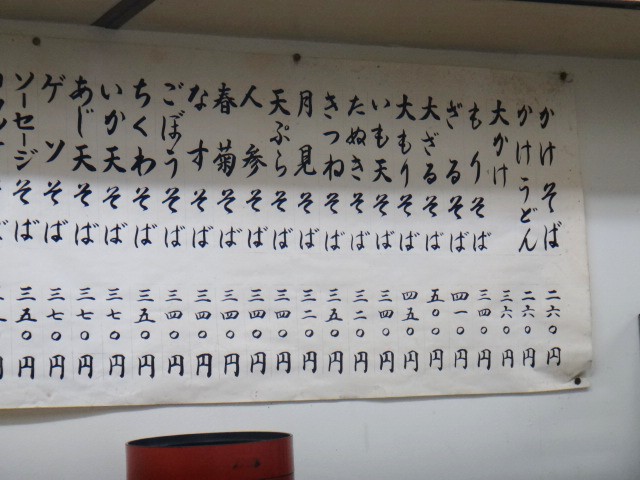 かけそば 二六〇円
かけうどん 二六〇円
大かけ 三六〇円
もりそば 三四〇円
ざるそば 四一〇円
大ざるそば 五〇〇円
大もりそば 四五〇円
いも天そば 三四〇円
たぬきそば 三二〇円
きつねそば 三五〇円
月見そば 三二〇円
天ぷらそば 三四〇円
人参そば 三四〇円
春菊そば 三四〇円
なすそば 三四〇円
ごぼうそば 三四〇円
ちくわそば 三五〇円
いか天そば 三七〇円
あじ天そば 三七〇円
ゲソそば 三七〇円
ソーセージそば 三五〇円